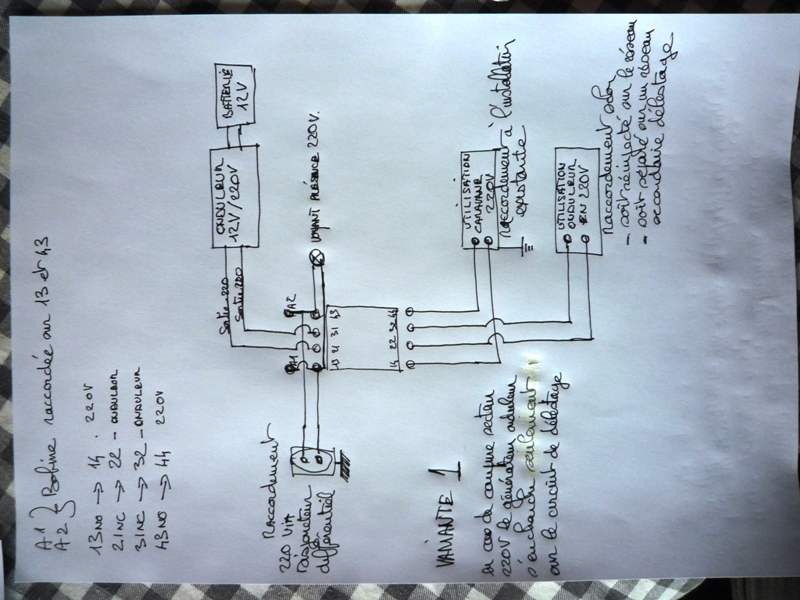 A1 } Bobine raccordée sur 13 et 43
A2
13 NO → 14 . 220V
21 NC → 22 - ONDULEUR
31 NC → 32 - ONDULEUR
43 NO → 44 220V
BATTERIE
12V
ONDULEUR
12V/220V
Sortie 220
Sortie 220
VOYANT PRÉSENCE 220V.
A1
A2
13 21 31 43
14 22 32 44
Raccordement
220 via
disjoncteur
différentiel
UTILISATION
CARAVANE
220V
Raccordement à l'installation
existante
UTILISATION
ONDULEUR
EN 220V
Raccordement selon
- soit réinjecté sur le réseau
- soit sur un réseau
secondaire délestage
VARIANTE 1
en cas de coupure secteur
220V le générateur onduleur
s'enclenche seulement
sur le circuit de délestage